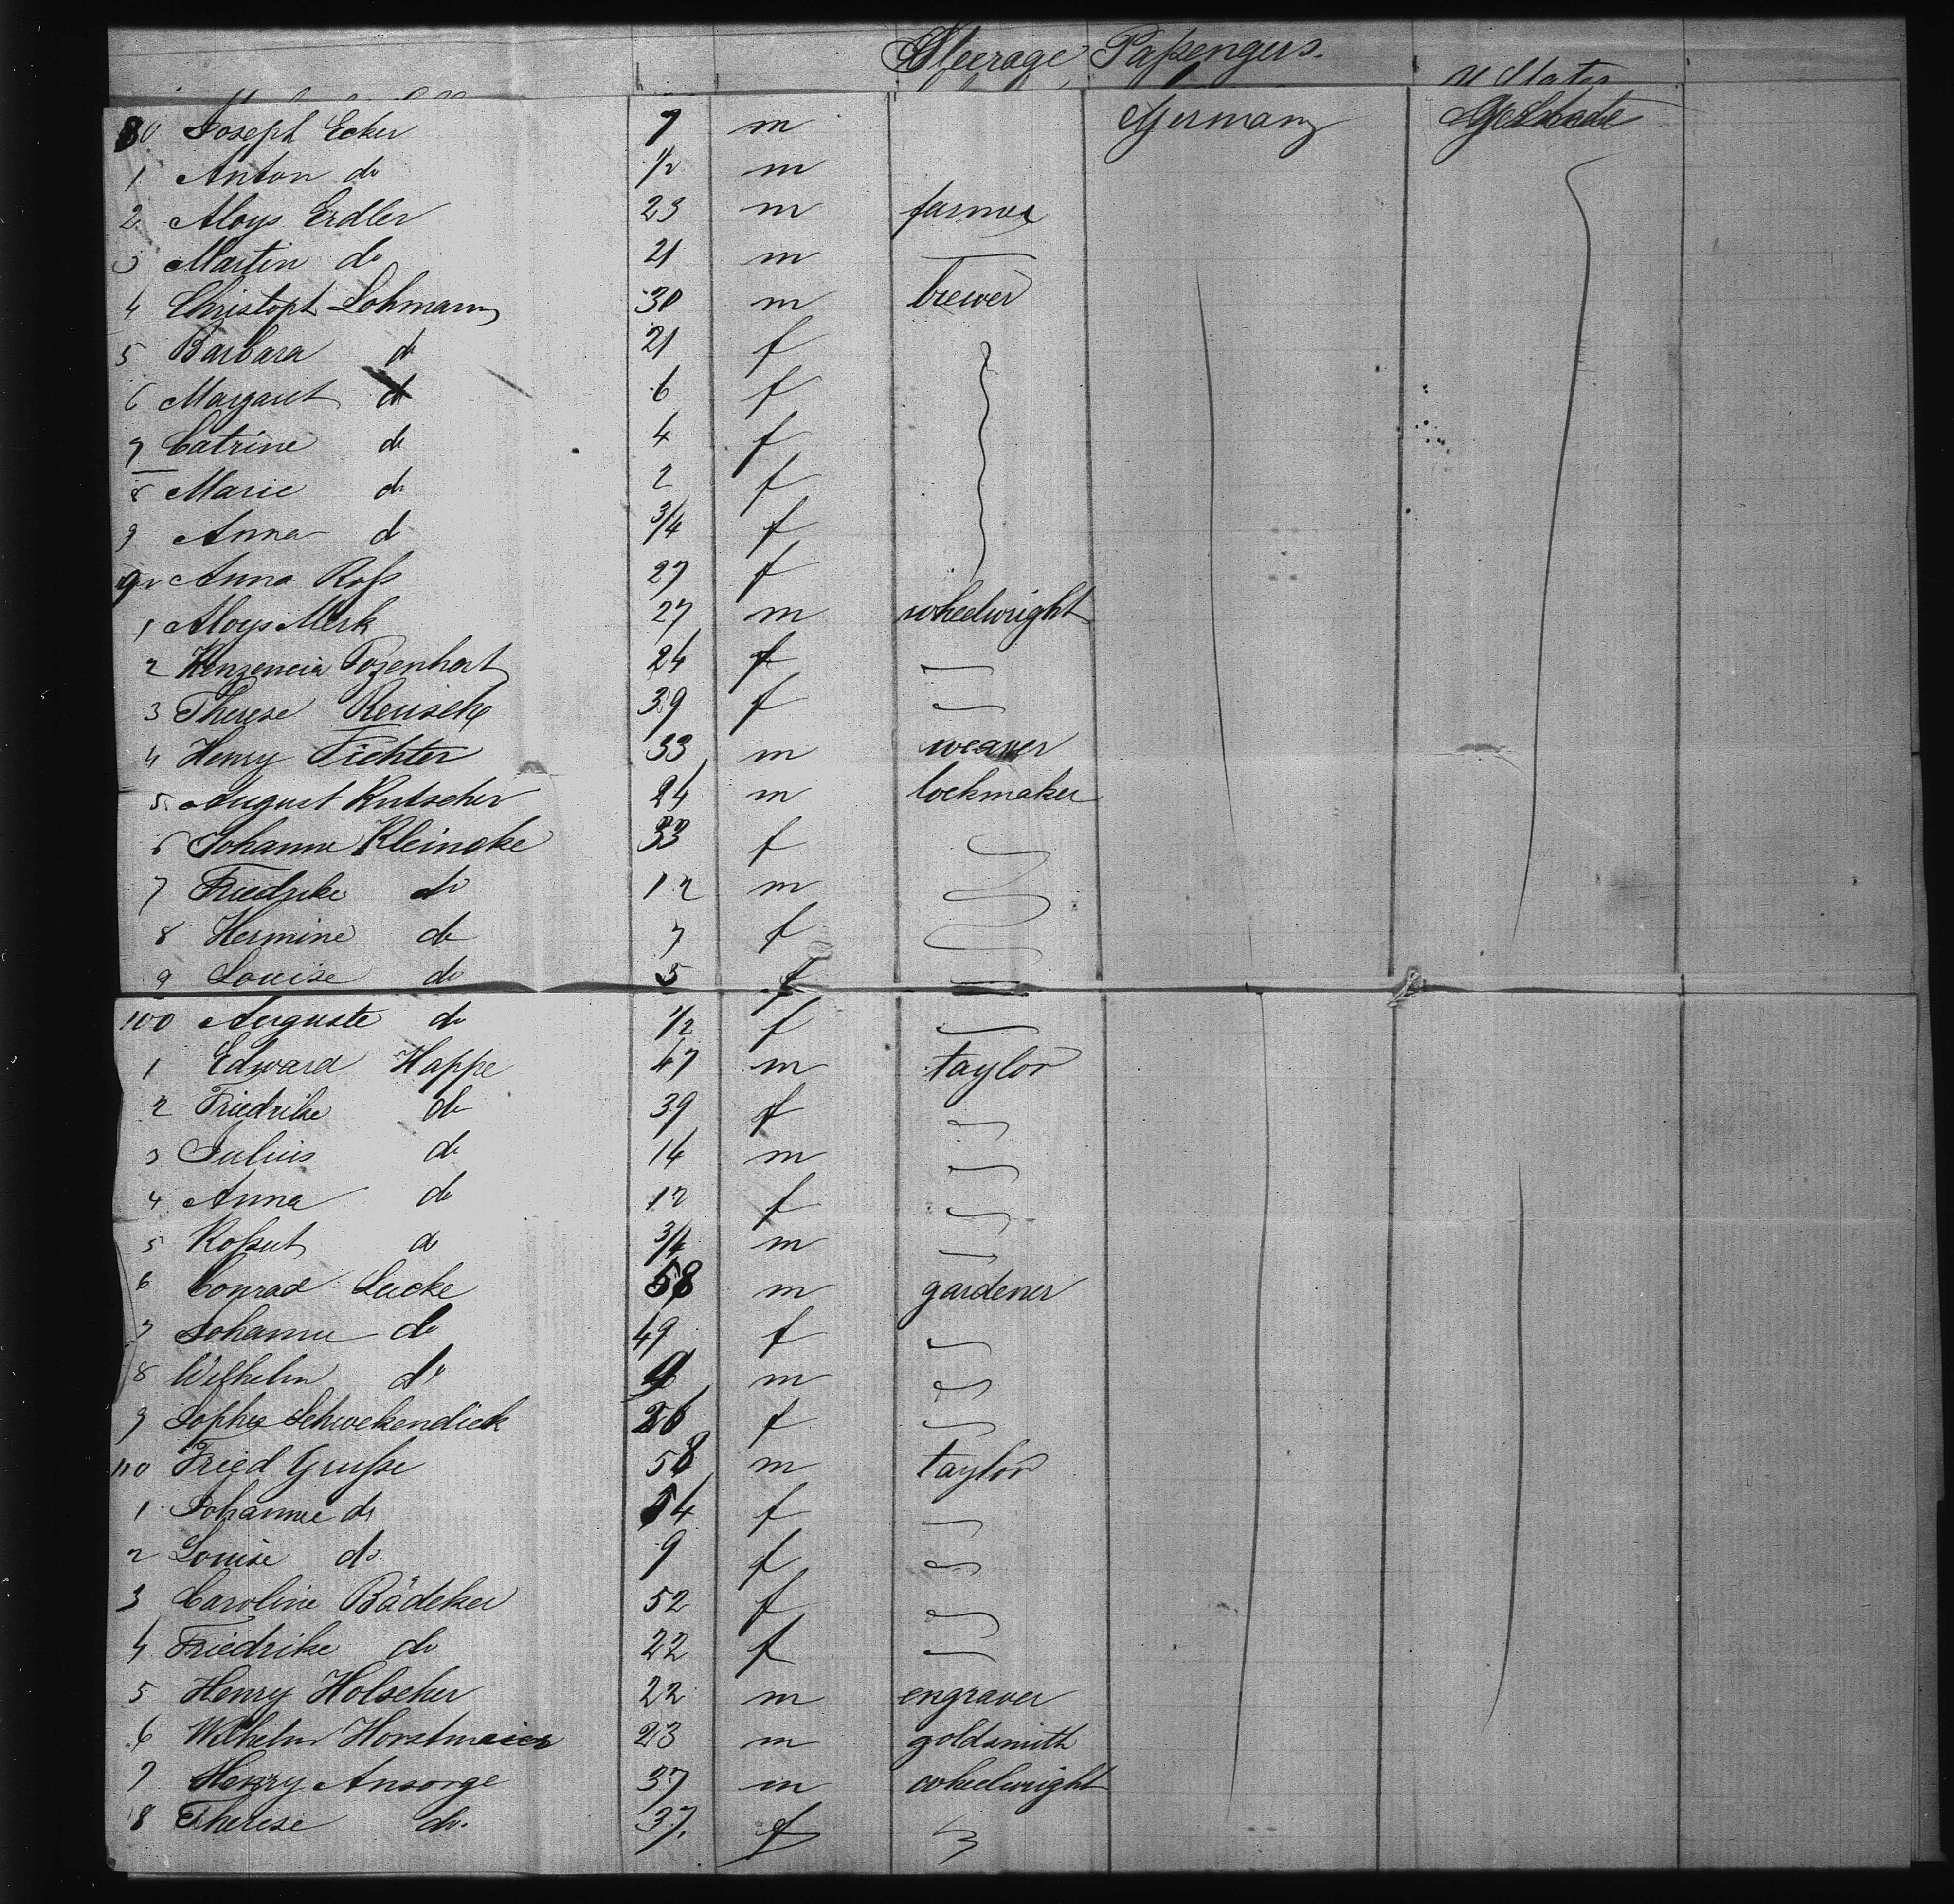 Steerage Passengers.
U States
80 Joseph Ecker 7 m Germany
1 Anton do 1/2 m
2 Aloys Erdler 23 m farmer
3 Martin do 21 m —
4 Christoph Lohmann 30 m brewer
5 Barbara do 21 f
6 Margaret do 6 f
7 Catrine do 4 f
8 Marie do 2 f
9 Anna do 3/4 f
90 Anna Roſs 27 f
1 Aloys Merk 27 m wheelwright
2 24 f —
3 Therese 39 f —
4 Henry Fichter 33 m weaver
5 August Kutscher 24 m lockmaker
6 Johanne Kleineke 33 f
7 Friedrike do 12 m
8 Hermine do 7 f
9 Louise do 5 f
100 Auguste do 1/2 f —
1 Edward Happe 47 m taylor
2 Friedrike do 39 f
3 Julius do 14 m
4 Anna do 12 f
5 Koſsut do 3/4 m
6 Conrad Lucke 58 m gardener
7 Johanne do 49 f
8 Wilhelm do 9 m
9 Sophie Schwekendiek 26 f
110 Fried Gruſse 58 m taylor
1 Johanne do 54 f
2 Louise do. 9 f
3 Caroline Bädeker 52 f
4 Friedrike do 22 f
5 Henry Holscher 22 m engraver
6 Wilhelm Horstmeier 23 m goldsmith
7 Henry Ansorge 37 m wheelwright
8 Therese do. 37. f